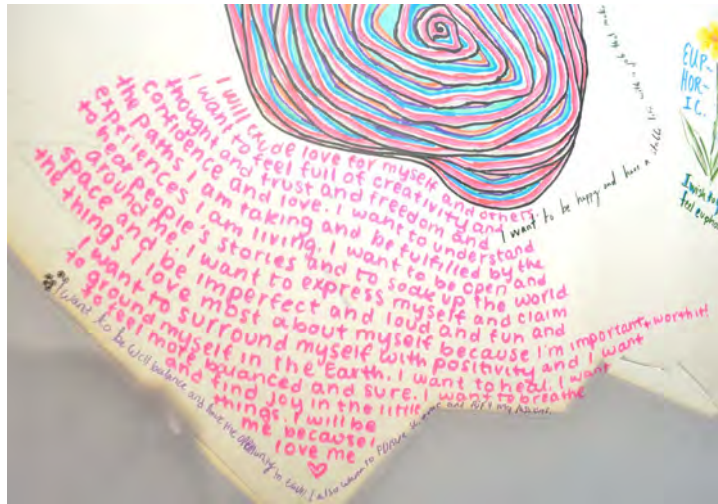 I will exude love for myself and others.
I want to feel full of creativity and
thought and trust and freedom and
confidence and love. I want to understand
the paths I am taking and be fulfilled by the
experiences I am living. I want to be open and
to hear people's stories and to soak up the world
around me. I want to express myself and claim
space and be imperfect and loud and fun and
the things I love most about myself because I'm important + worth it!
I want to surround myself with positivity and I want
to ground myself in the Earth. I want to heal. I want
to feel more balanced and sure. I want to breathe
and find joy in the little
things. I will be
me because I
love me
I want to be happy and have a stable
life with a job that
EUP-
HOR-
IC.
I wish to
feel eupho
I want to be well balance and have the opportunity to I also want to pursue my and my passions.